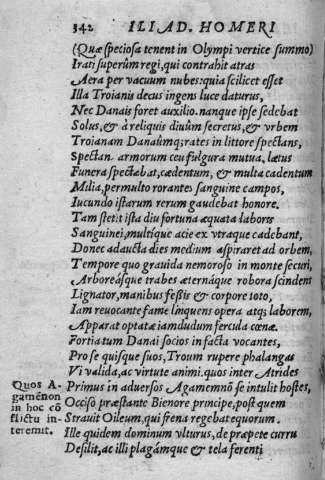 342 ILIAD. HOMERI
(Quæ speciosa tenent in Olympi vertice summo)
Irati superûm regi, qui contrahit atras
Aera per vacuum nubes: quia scilicet esset
Illa Troianis decus ingens luce daturus,
Nec Danais foret auxilio. nanque ipse sedebat
Solus, & à reliquis diuûm secretus, & vrbem
Troianam Danaûmq; rates in littore spectans,
Spectans armorum ceu fulgura mutua. lætus
Funera spectabat, cædentum, & multa cadentum
Millia, permulto rorantes sanguine campos,
Iucundo istarum rerum gaudebat honore.
Tam stetit ista diu fortuna æquata laboris
Sanguinei, multíque acie ex vtraque cadebant,
Donec adaucta dies medium aspiraret ad orbem,
Tempore quo grauida nemoroso in monte securi,
Arboreásque trabes æternáque robora scindens
Lignator, manibus fessis & corpore toto,
Iam reuocante fame linquens opera atq; laborem,
Apparat optatæ iamdudum fercula cœnæ.
Fortia tum Danai socios in facta vocantes,
Pro se quisque suos, Troum rupere phalangas
Vi valida, ac virtute animi. quos inter Atrides
Primus in aduersos Agamemnõ se intulit hostes,
Quos A-
gamēnon
in hoc cō
flictu in-
teremit.
Occiso præstante Bienore principe, post quem
Strauit Oileum, qui frena regebat equorum.
Ille quidem dominum vlturus, de præpete curru
Desilit, ac illi plagámque & tela ferenti